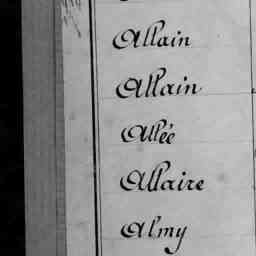 Allain
Allain
Allée
Allaire
Almy